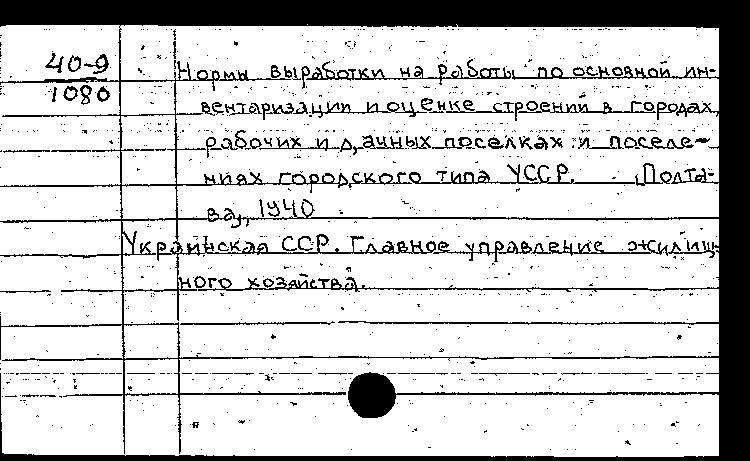 40-9
1080
Нормы выработки на работы по основной ин-
вентаризации и оценке строений в городах,
рабочих и дачных поселках и поселе-
ниях городского типа УССР. [Полта-
ва], 1940
Украинская ССР. Главное управление жилищ-
ного хозяйства.